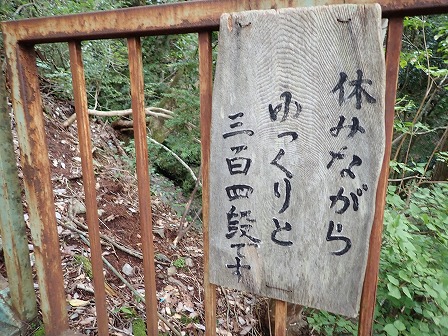 休みながら
ゆっくりと
三百四段です